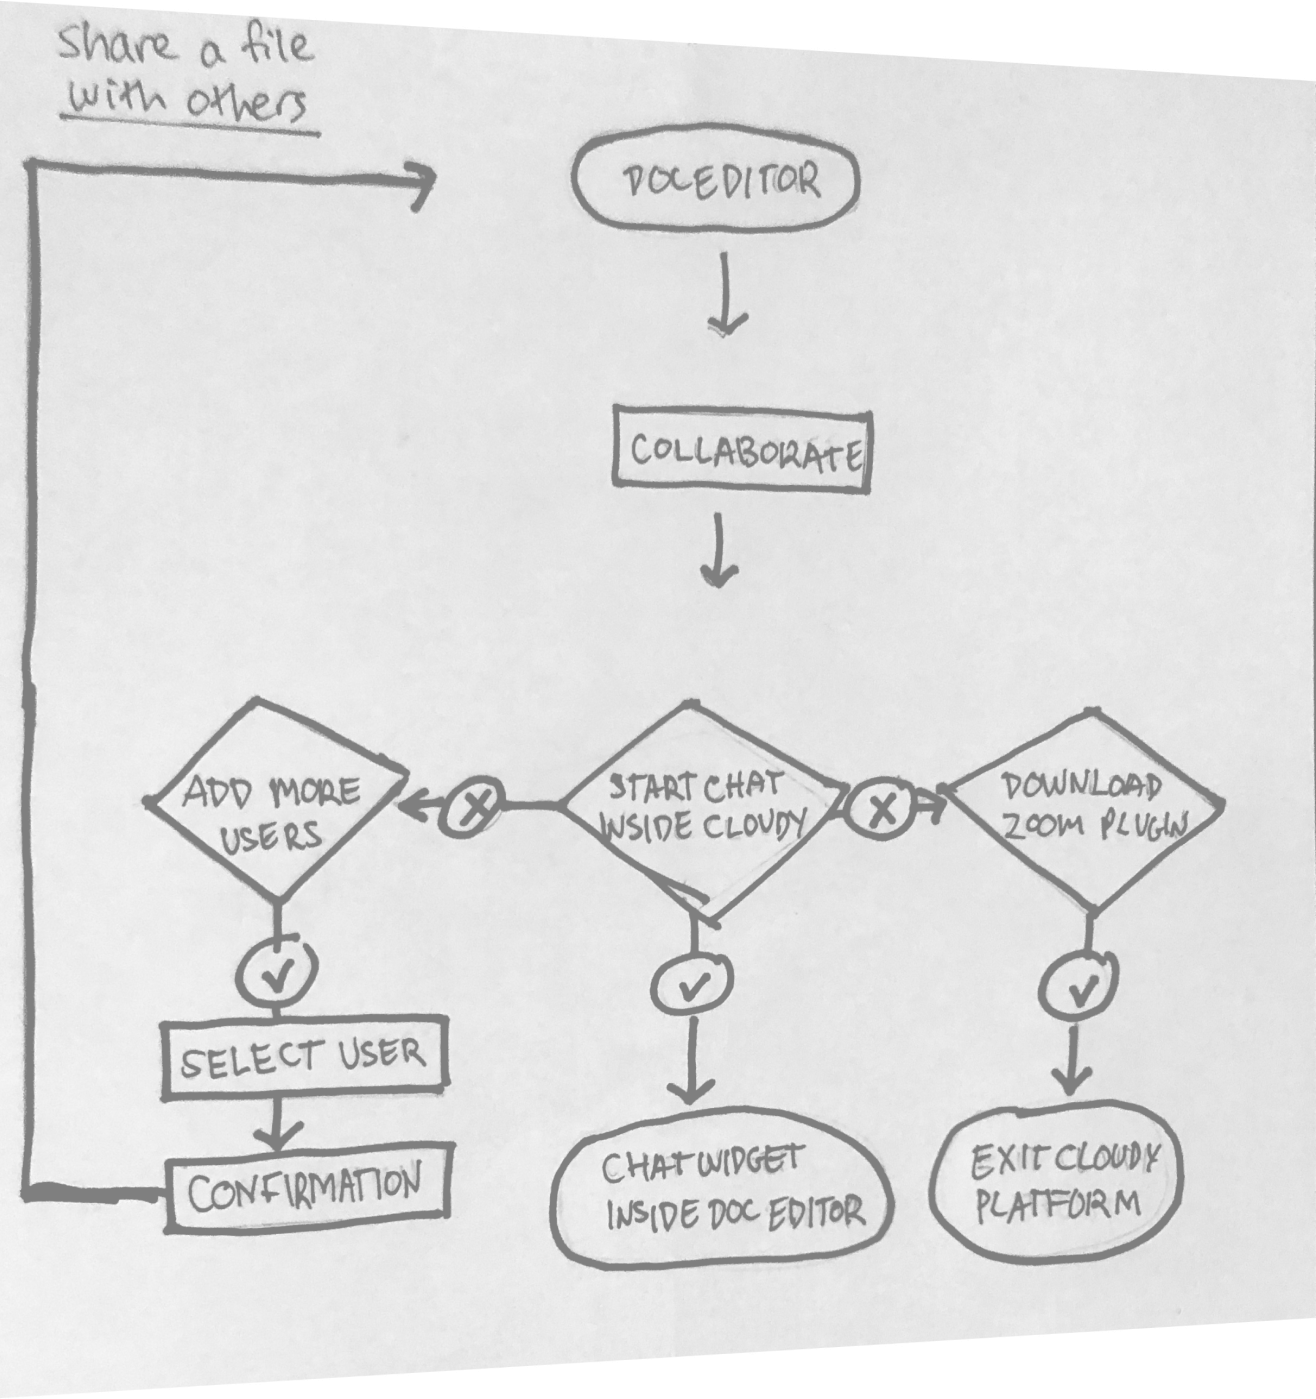 Share a file
with others
DOC EDITOR
COLLABORATE
ADD MORE
USERS
START CHAT
INSIDE CLOUDY
DOWNLOAD
ZOOM PLUGIN
SELECT USER
CONFIRMATION
CHAT WIDGET
INSIDE DOC EDITOR
EXIT CLOUDY
PLATFORM